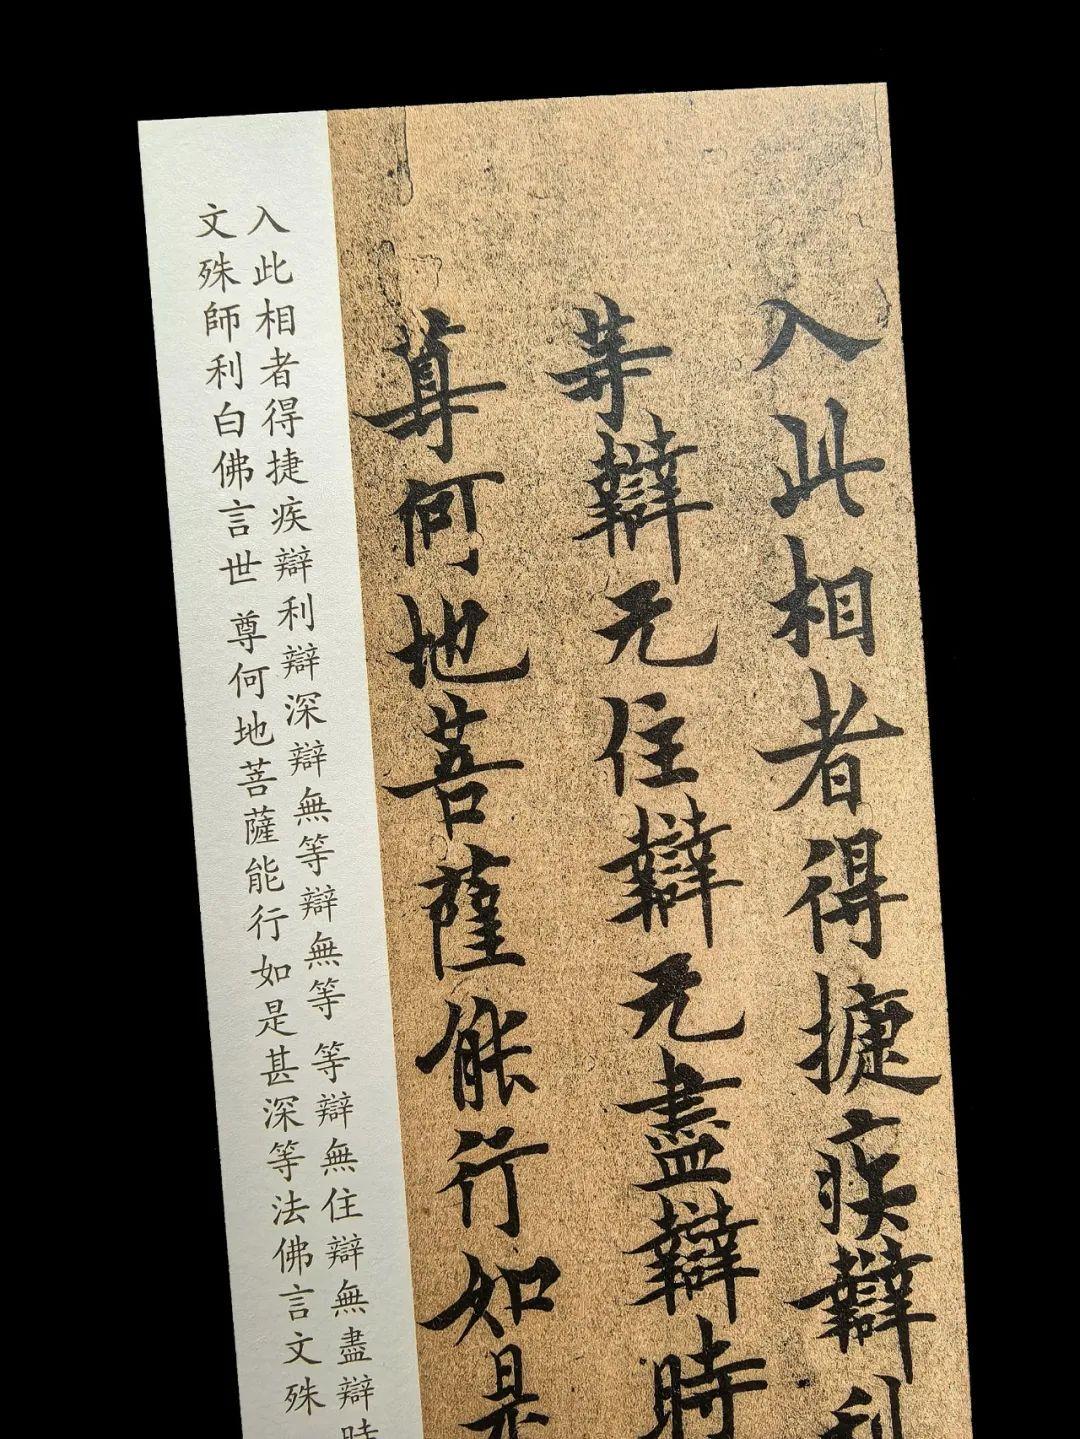 入此相者得捷疾辯利
等辯无住辯无盡辯時
尊何地菩薩能行如是
入此相者得捷疾辯利辯深辯無等辯無等 等辯無住辯無盡辯時
文殊師利白佛言世 尊何地菩薩能行如是甚深等法佛言文殊